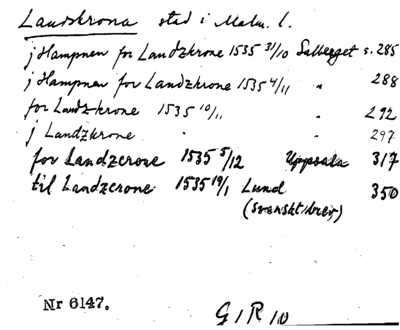 Landskrona stad i Malm. l.
j Hampnen for Landzkrone 1535 31/10 Salberget s. 285
j Hampnen for Landzkrone 1535 4/11 " 288
for Landzkrone 1535 10/11 " 292
j Landzkrone " " 297
for Landzcrone 1535 5/12 Uppsala 317
til Landzcrone 1535 19/1 Lund 350
(Svenskt brev)
Nr 6147.
G I R 10